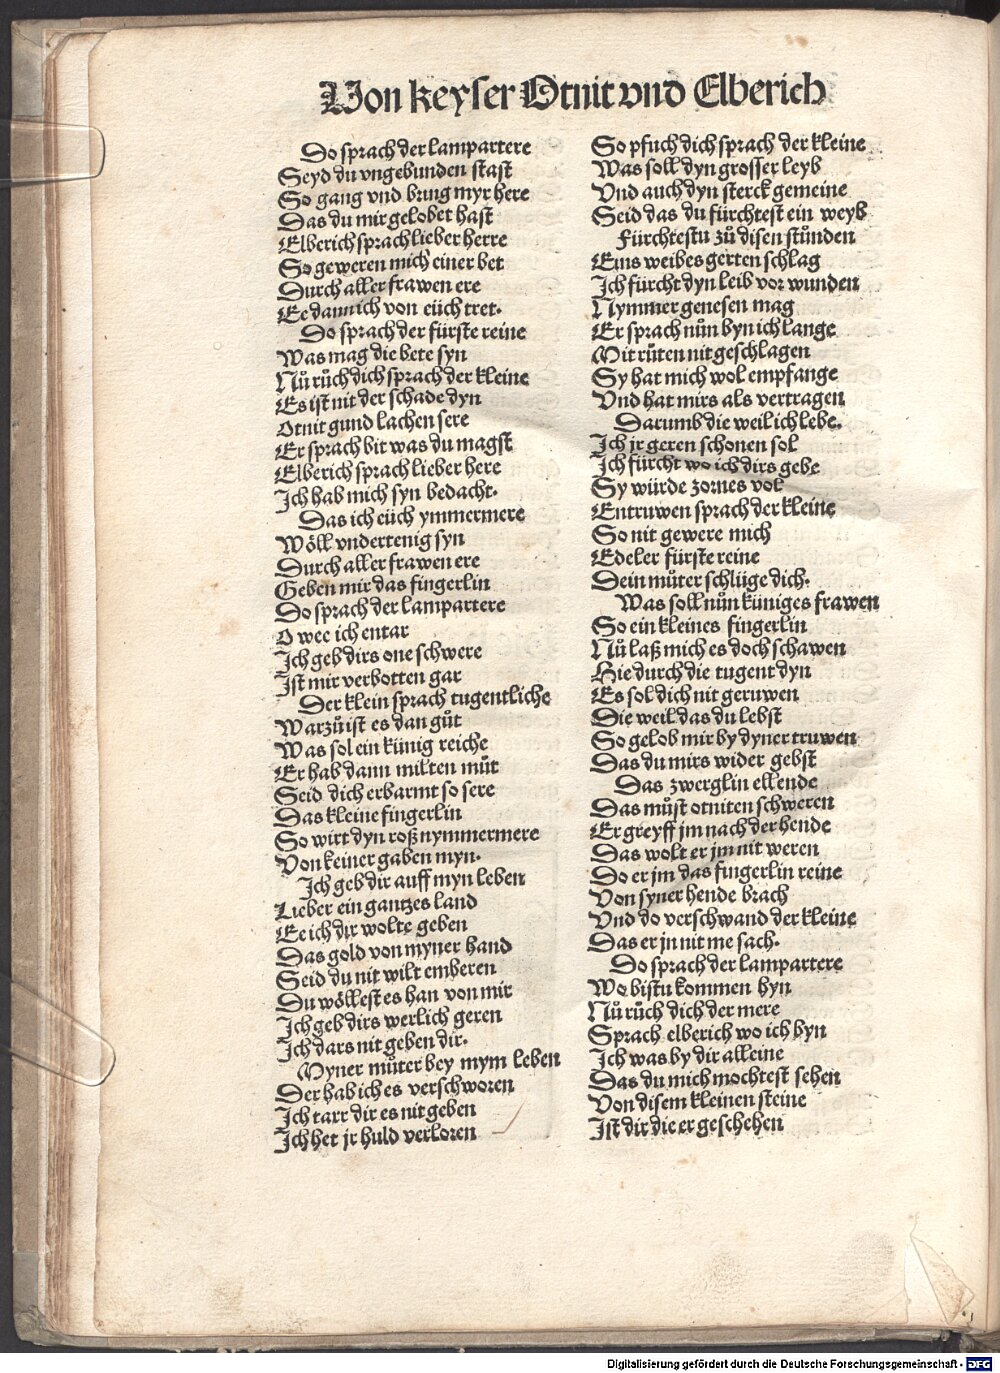 Von keyser Otnit vnd Elberich
Do sprach der lampartere
Seyd du vngebunden stast
So gang vnd brung myr here
Das du mir gelobet hast
Elberich sprach lieber herre
So geweren mich einer bet
Durch aller frawen ere
Ee dann ich von eüch tret.
Do sprach der fürste reine
Was mag die bete syn
Nů růch dich sprach der kleine
Es ist nit der schade dyn
Otnit gund lachen sere
Er sprach bit was du magst
Elberich sprach lieber here
Ich hab mich syn bedacht.
Das ich eüch ymmermere
Wöll vndertenig syn
Durch aller frawen ere
Geben mir das fingerlin
Do sprach der lampartere
O wee ich entar
Ich geb dirs one schwere
Ist mir verbotten gar
Der klein sprach tugentliche
Warzů ist es dan gůt
Was sol ein künig reiche
Er hab dann milten můt
Seid dich erbarmt so sere
Das kleine fingerlin
So wirt dyn roß nymmermere
Von keiner gaben myn.
Ich geb dir auff myn leben
Lieber ein gantzes land
Ee ich dir wolte geben
Das gold von myner hand
Seid du nit wilt emberen
Du wöllest es han von mir
Ich geb dirs werlich geren
Ich dars nit geben dir.
Myner můter bey mym leben
Der hab ich es verschworen
Ich tarr dir es nit geben
Ich het jr huld verloren
So pfuch dich sprach der kleine
Was soll dyn grosser leyb
Vnd auch dyn sterck gemeine
Seid das du fürchtest ein weyb
Fürchtestu zů disen stůnden
Eins weibes gerten schlag
Ich fürcht dyn leib vor wunden
Nymmer genesen mag
Er sprach nůn byn ich lange
Mit růten nit geschlagen
Sy hat mich wol empfange
Vnd hat mirs als vertragen
Darumb die weil ich lebe.
Ich jr geren schonen sol
Ich fürcht wo ich dirs gebe
Sy würde zornes vol
Entruwen sprach der kleine
So nit gewere mich
Edeler fürste reine
Dein můter schlüge dich.
Was soll nůn küniges frawen
So ein kleines fingerlin
Nů laß mich es doch schawen
Hie durch die tugent dyn
Es sol dich nit geruwen
Die weil das du lebst
So gelob mir by dyner truwen
Das du mirs wider gebst
Das zwerglin ellende
Das můst otniten schweren
Er greyff jm nach der hende
Das wolt er jm nit weren
Do er jm das fingerlin reine
Von syner hende brach
Vnd do verschwand der kleine
Das er jn nit me sach.
Do sprach der lampartere
Wo bistu kommen hyn
Nů růch dich der mere
Sprach elberich wo ich byn
Ich was by dir alleine
Das du mich mochtest sehen
Von disem kleinen steine
Ist dir die er geschehen
Digitalisierung gefördert durch die Deutsche Forschungsgemeinschaft - DFG